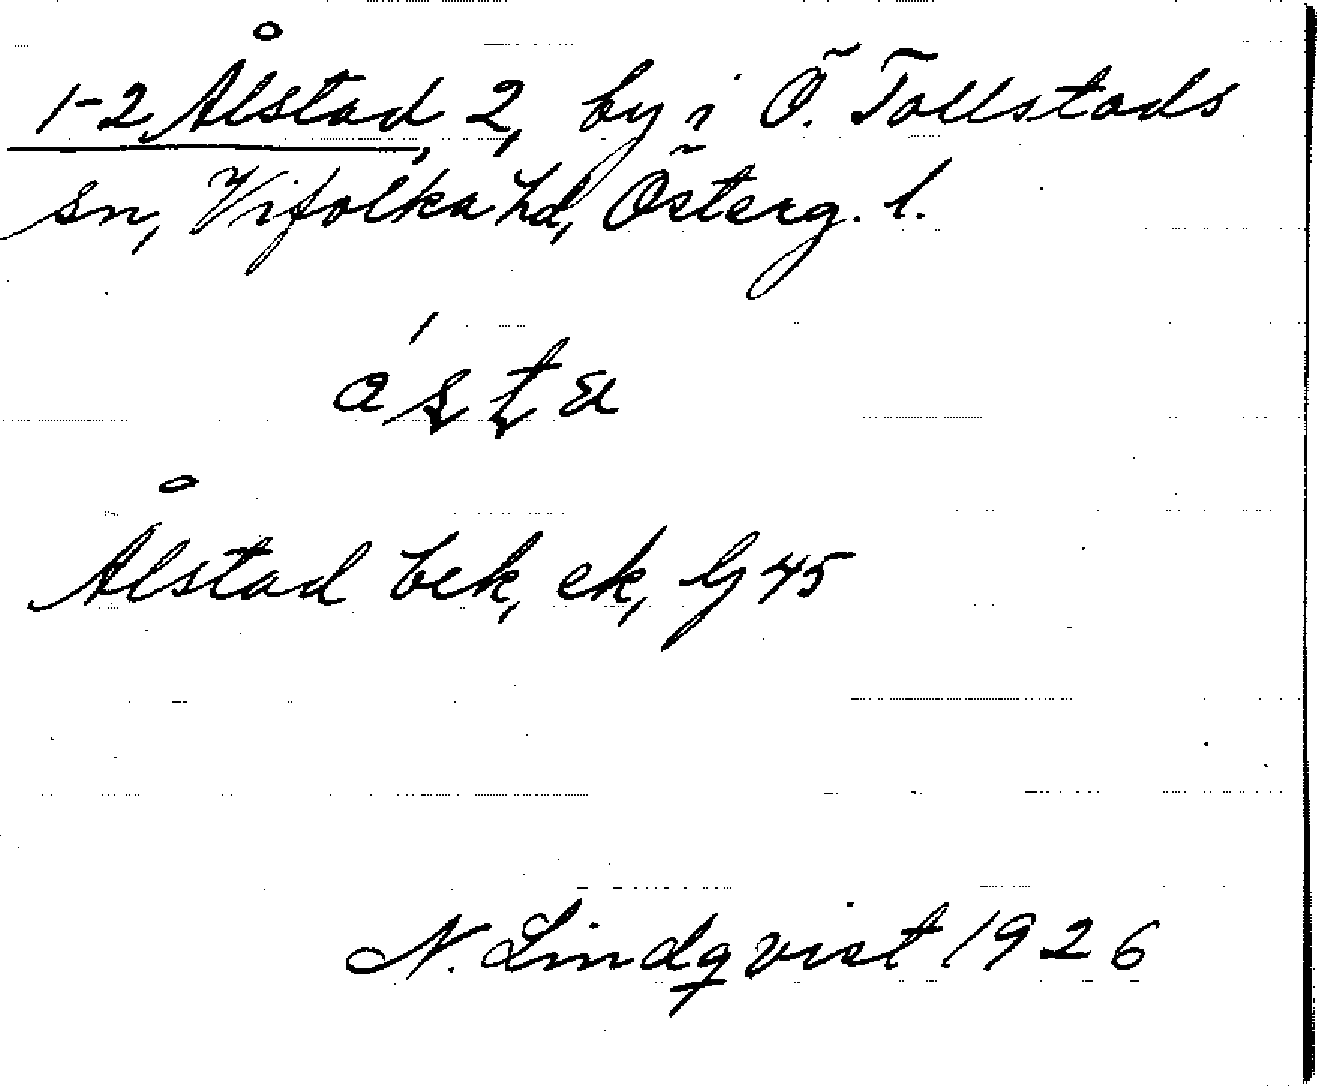 1-2 Ålstad, 2, by i Ö. Tollstads
sn, Vifolka hd, Österg. l.
ó s t a
Ålstad bek, ek, Gj 45
N. Lindqvist 1926